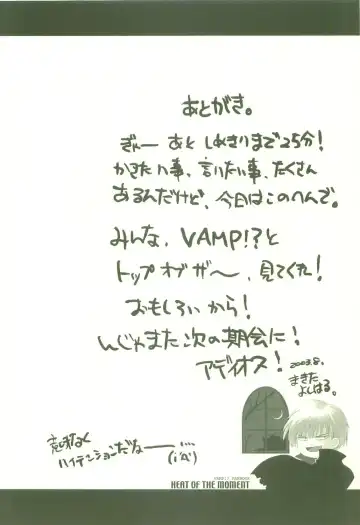 あとがき。
ぎゃー あと しめきりまで25分!
かきたい事、言いたい事、たくさん
あるんだけど、今日はこのへんで。
みんな、VAMP!?と
トップオブザ〜、見てくれ!
おもしろいから!
んじゃまた次の期会に!
アディオス!
2003.8.
まきた
よしはる。
意味なく
ハイテンションだなーー….
(;´Д`)
HEAT OF THE MOMENT